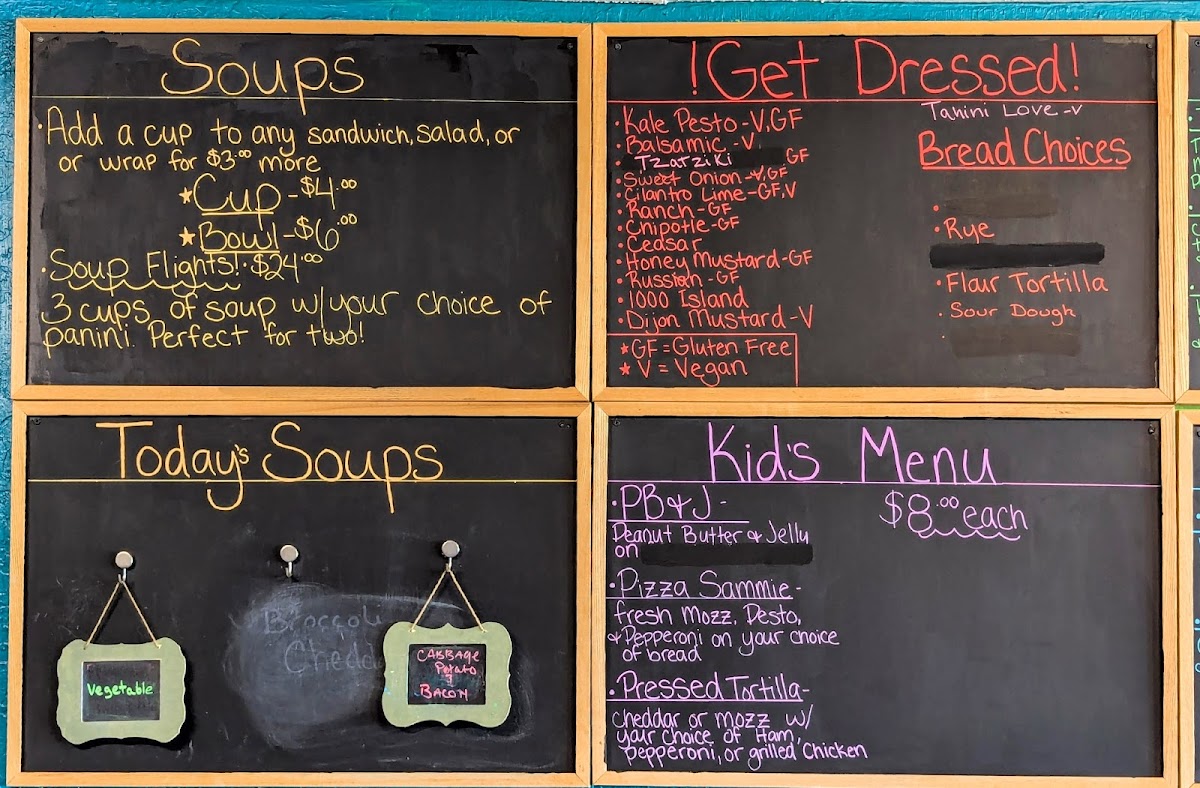 Soups
·Add a cup to any sandwich, salad, or
or wrap for $3.00 more
★Cup-$4.00
★Bowl-$6.00
·Soup Flights!·$24.00
3 cups of soup w/your choice of
panini. Perfect for two!
!Get Dressed!
·Kale Pesto-V,GF
·Balsamic-V
·Tzatziki GF
·Sweet Onion-V,GF
·Cilantro Lime-GF,V
·Ranch-GF
·Chipotle-GF
·Ceasar
·Honey Mustard-GF
·Russian-GF
·1000 Island
·Dijon Mustard-V
★GF=Gluten Free
★V=Vegan
Tahini Love-V
Bread Choices
·Rye
·Flour Tortilla
·Sour Dough
Today's Soups
Vegetable
Broccoli
Chedd
CABBAGE
Potato
&
BACON
Kid's Menu
$8.00 each
·PB&J-
Peanut Butter & Jelly
on
·Pizza Sammie-
fresh Mozz, Pesto,
&Pepperoni on your choice
of bread
·Pressed Tortilla-
cheddar or mozz w/
your choice of Ham,
pepperoni, or grilled Chicken